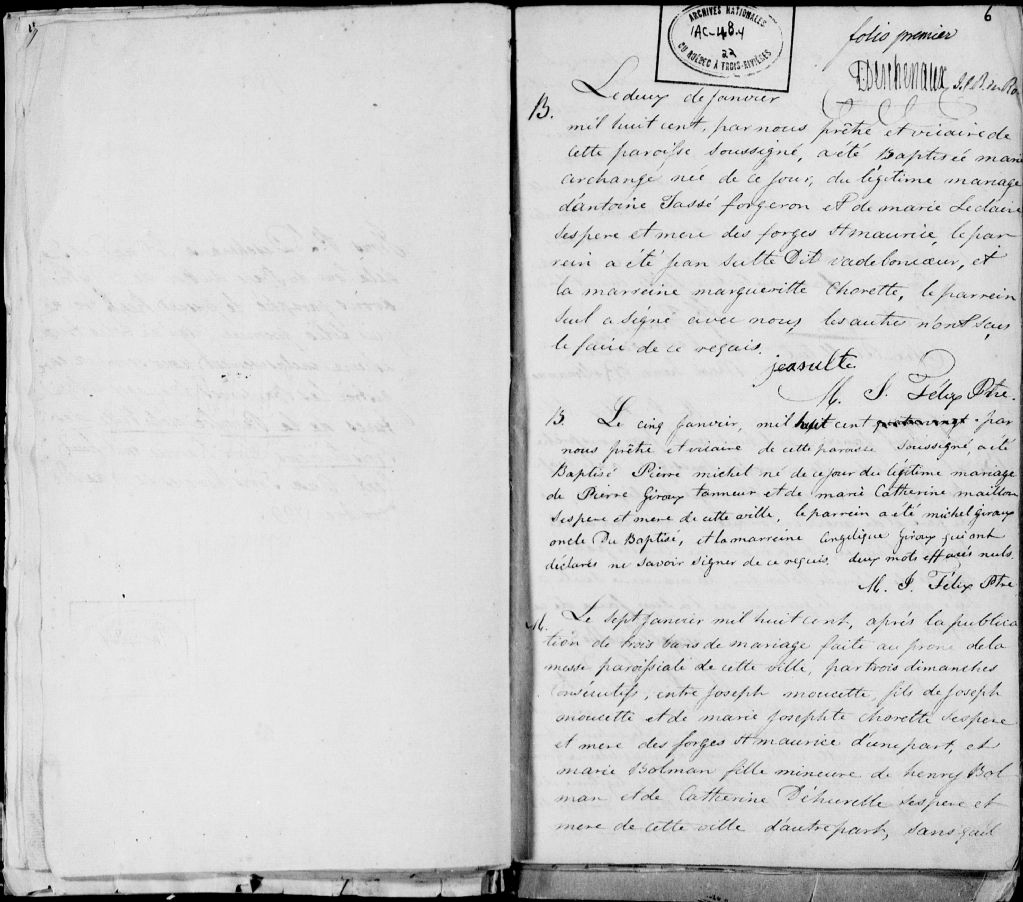 6
ARCHIVES NATIONALES
1AC-48.4
22
DU QUÉBEC À TROIS-RIVIÈRES
folio premier
Deschenaux
B.
Le deux de janvier
mil huit cent, par nous prêtre et vicaire de
cette paroisse soussigné, a été Baptisée marie
archange neé de ce jour, du légitime mariage
d'antoine Tassé forgeron et de marie Leclaire
ses pere et mere des forges St maurice, le par
rein a été jean sulte Dit vadeboncœur, et
la marreine margueritte Chorette, le parrein
seul a signé avec nous, les autres n'ont sçus
le faire de ce requis.
jeasulte
M. J. Félix Ptre.
B. Le cinq janvier, mil huit cent par
nous prêtre et vicaire de cette paroisse soussigné, a été
Baptisé Pierre michel né de ce jour du légitime mariage
de Pierre Giroux tanneur et de marie Catherine maillou
ses pere et mere de cette ville, le parrein a été michel giroux
oncle Du Baptisé, et la marreine angelique Giroux qui ont
déclarés ne savoir signer de ce requis. deux mots effacés nuls.
M. J. Félix Ptre
M. Le sept janvier mil huit cent, aprés la publica
tion de trois bans de mariage faite au prone de la
messe paroissiale de cette ville, par trois dimanches
consécutifs, entre joseph moucette, fils de joseph
moucette et de marie josephte Chorette ses pere
et mere des forges St maurice d'une part, et
marie Bolman fille mineure de henry Bol
man et de Catherine Déhurelle ses pere et
mere de cette ville d'autre part, sans qu'il